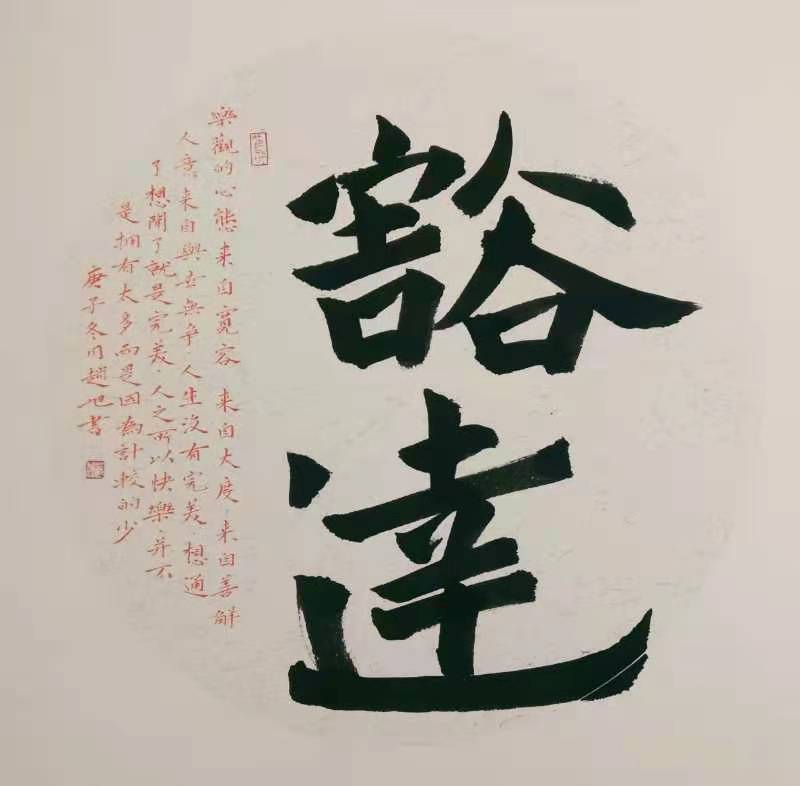 豁達
樂觀的心態来自寬容来自大度来自善解
人意来自與世無争人生没有完美想通
了想開了就是完美人之所以快樂并不
是拥有太多而是因為計较的少
庚子冬月趙旭書